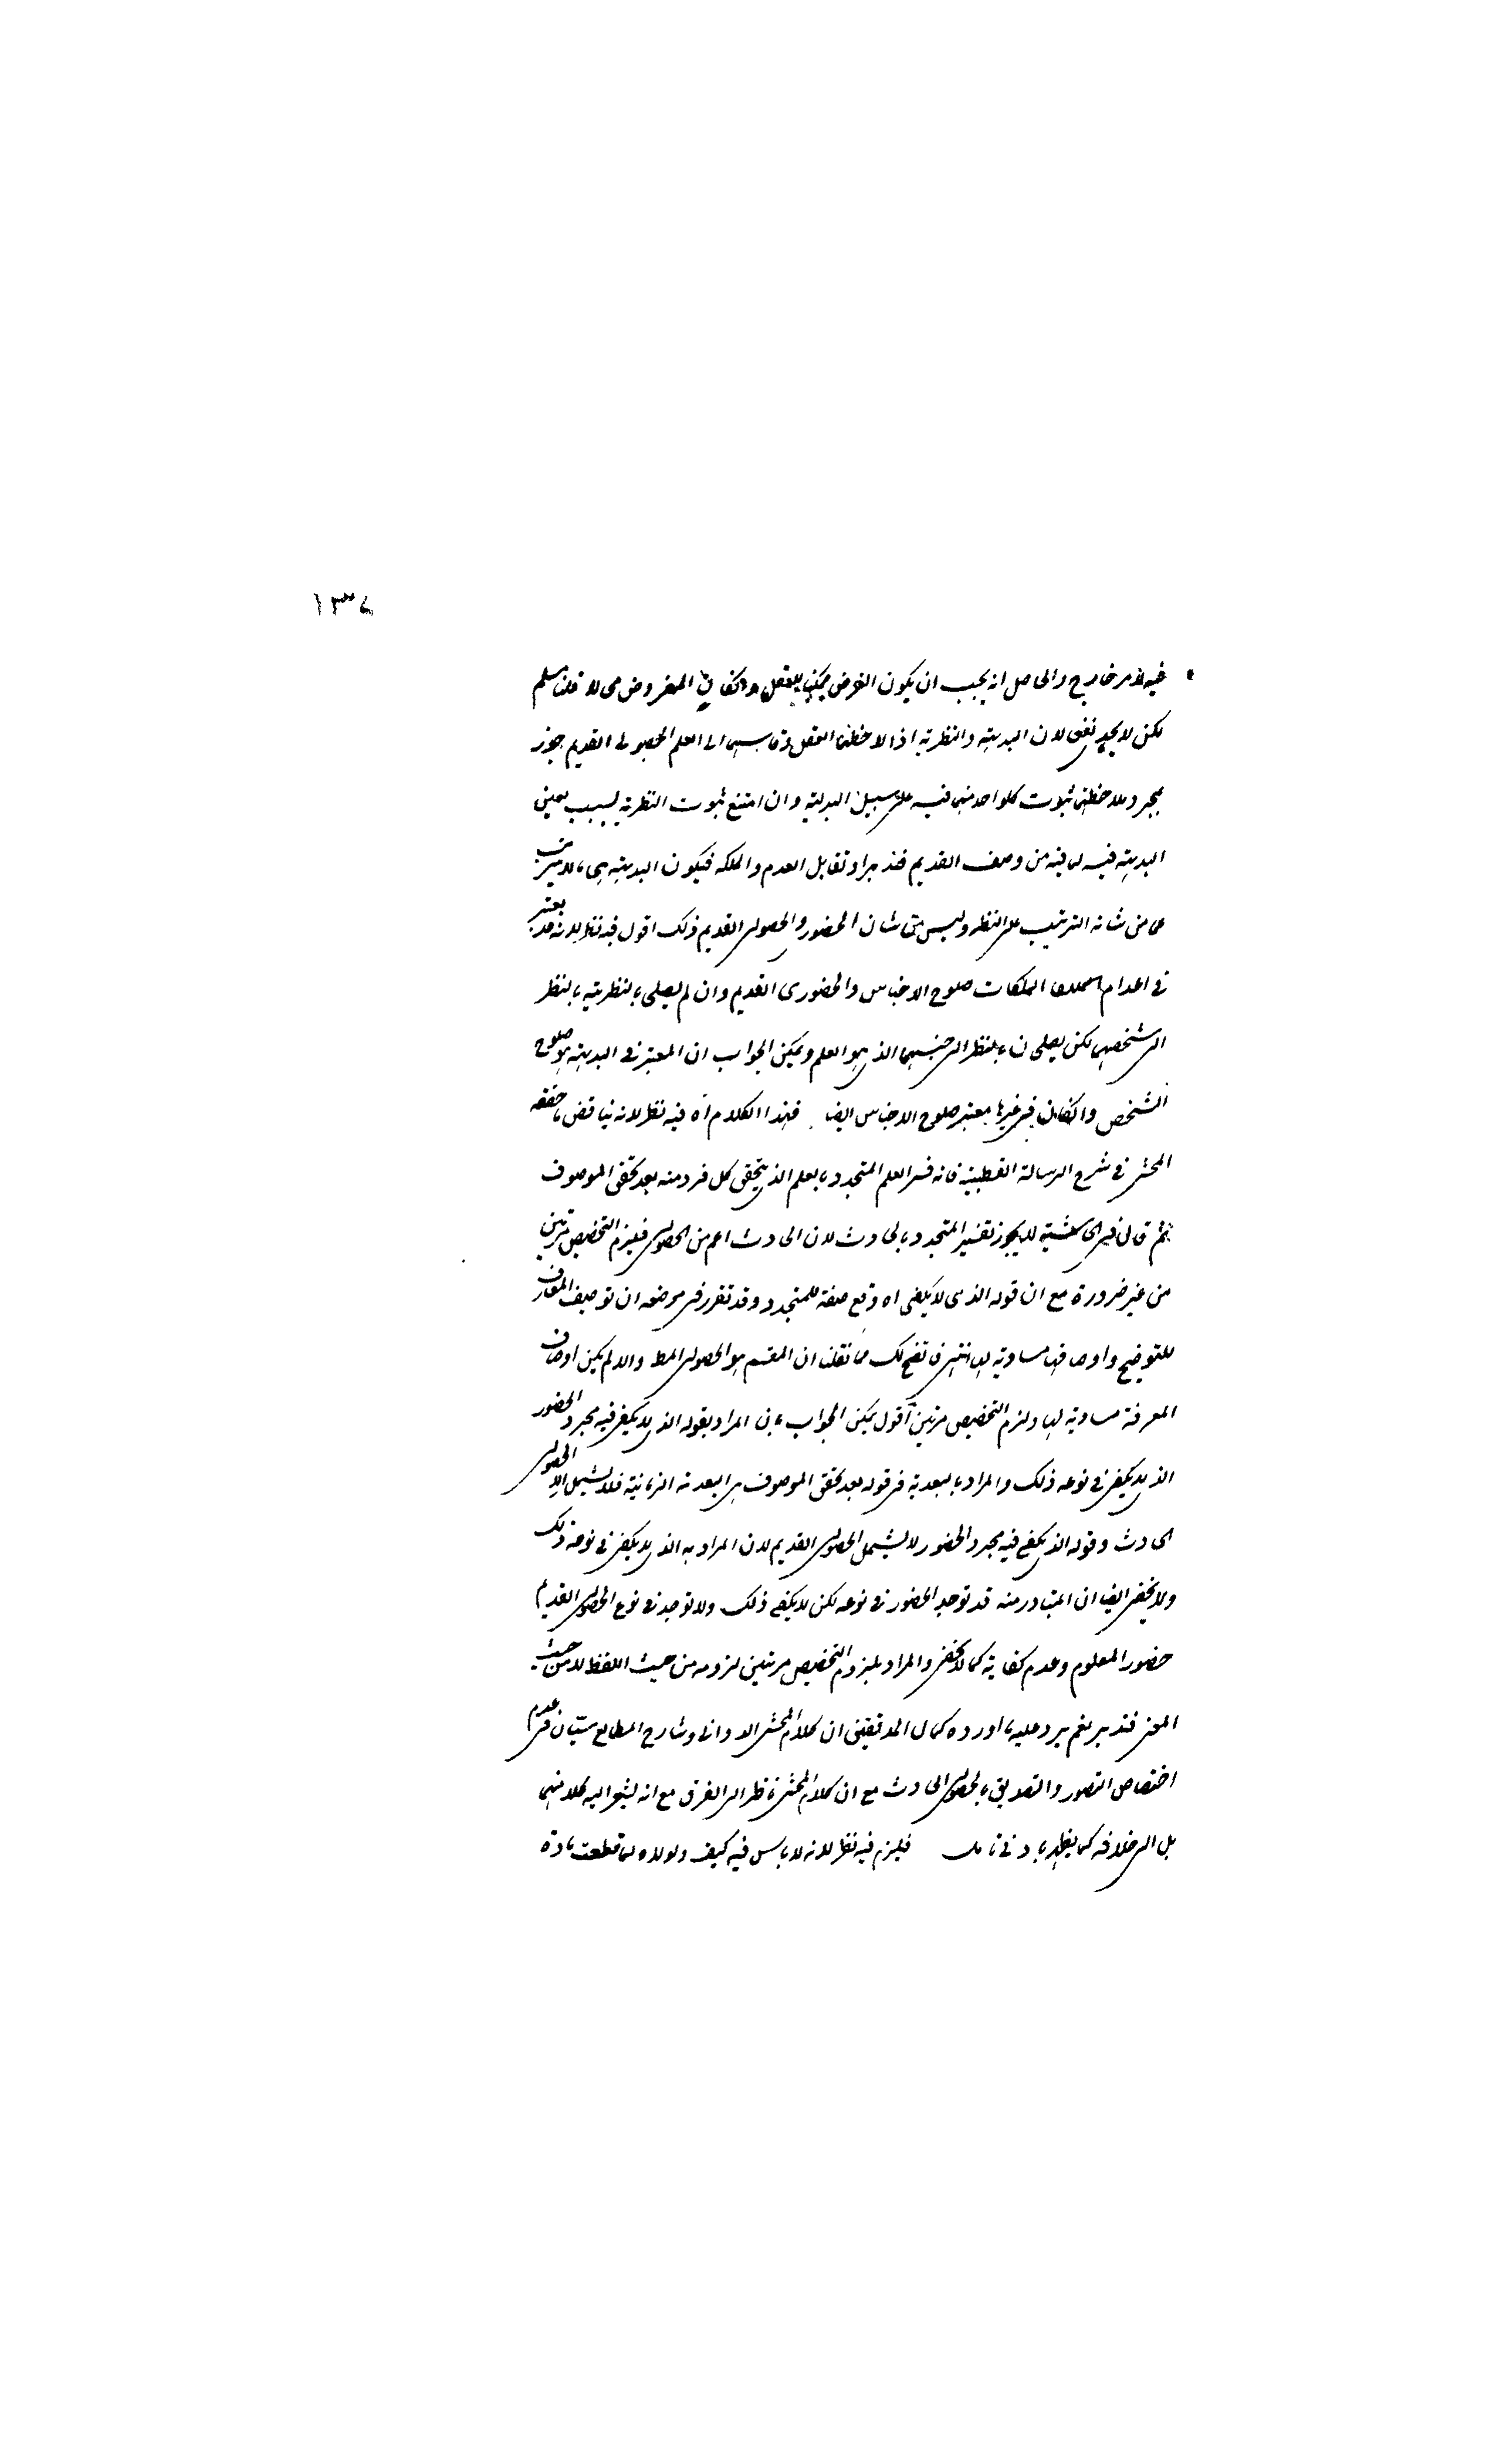 ١٣٧
فيه لامر خارج والحاصل انه يجب ان يكون الفرض ممكنا للعقل وان كان المفروض محالا قلنا مسلم
لكن لا يجدي نفعا لان البديهية والنظرية اذا لاحظهما العقل وقاسهما الى العلم الحصولي القديم جوز
بمجرد ملاحظتهما ثبوت كلواحد منهما فيه على سبيل البدلية وان امتنع ثبوت النظرية بسبب تعين
البديهية فيه لما فيه من وصف القديم فقد يراد تقابل العدم والملكة فيكون البديهية هي ما لا يترتب
عما من شانه الترتيب على النظر وليس من شان الحضور والحصولي القديم ذلك اقول فيه نظر لانه قد يعتبر
في اعدام الملكات صلوح الاجناس والحضوري القديم وان لم يصلحا بنظريته بالنظر
الى شخصهما لكن يصلحان بالنظر الى جنسهما الذي هو العلم ويمكن الجواب ان المعتبر في البديهية هو صلوح
الشخص وان كان في غيرها يعتبر صلوح الاجناس ايضا فهذا الكلام اه فيه نظر لانه يناقض ما حققه
المحشي في شرح الرسالة القطبية فانه فسر العلم المتجدد بالعلم الذي يتحقق كل فرد منه بعد تحقق الموصوف
ثم قال في الحاشية لا يجوز تفسير المتجدد بالحادث لان الحادث اعم من الحصولي فيلزم التخصيص مرتين
من غير ضرورة مع ان قوله الذي لا يكفي اه وقع صفة للمتجدد وقد تقرر في موضعه ان توصيف المعارف
للتوضيح واوصافها مساوية لها انتهى فاتضح لك مما نقلنا ان المقسم هو الحصولي المط والا لم يكن اوصاف
المعرفة مساوية لها ولزم التخصيص مرتين اقول يمكن الجواب بان المراد بقوله الذي لا يكفي فيه مجرد الحضور
الذي لا يكفي في نوعه ذلك والمراد بالبعدية في قوله بعد تحقق الموصوف هي البعدية الزمانية فلا يشمل الا الحصولي
الحادث وقوله الذي يكفي فيه مجرد الحضور لا يشمل الحصولي القديم لان المراد به الذي لا يكفي في نوعه ذلك
ولا يخفى ايضا ان المتبادر منه قد توجد الحضور في نوعه لكن لا يكفي ذلك ولا توجد في نوع الحصولي القديم
حضور المعلوم وعدم كفاية كما لا يخفى والمراد بلزوم التخصيص مرتين لزومه من حيث اللفظ لا من حيث
المعنى فتدبر نعم يرد عليه ما اورده كمال المدققين ان كلام المحشي الدواني وشارح المطالع سيان في عدم
اختصاص التصور والتصديق بالحصولي الحادث مع ان كلام المحشي ناظر الى الفرق مع انه يشعر اليه كلامهما
بل الى خلافه كما يظهر بادنى تامل فيلزم فيه نظر لانه لا باس فيه كيف ولولاه لما قطعت مادة